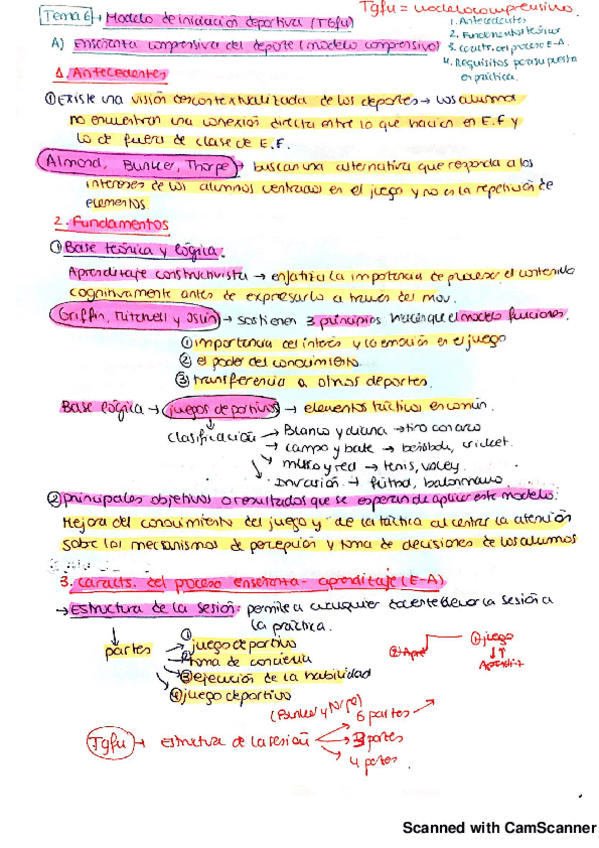 Tgfu = modelo compresivo.
Tema 6 → Modelo de iniciación deportiva (TGfu)
1. Antecedentes
2. Fundamentos teóricos
3. Caracts. del proceso E-A.
4. Requisitos para su puesta en práctica.
A) Enseñanza comprensiva del deporte (modelo compresivo)
1. Antecedentes
① Existe una visión descontextualizada de los deportes → Los alumnos
no encuentran una conexión directa entre lo que hacen en E.F y
lo de fuera de clase de E.F.
Almond, Bunker, Thorpe → buscan una alternativa que responda a los
intereses de los alumnos centrados en el juego y no en la repetición de
elementos.
2. Fundamentos
① Base teórica y lógica:
Aprendizaje constructivista → enfatiza la importancia de procesar el contenido
cognitivamente antes de expresarlo a través del mov.
Griffin, Mitchell y Oslin → sostienen 3 principios hacen que el modelo funcione.
① importancia del interés y la emoción en el juego
② el poder del conocimiento.
③ transferencia a otros deportes.
Base lógica → juegos deportivos → elementos tácticos en común.
clasificación → Blanco y diana → tiro con arco
→ campo y bate → béisbol, cricket.
→ muro y red → tenis, voley.
Invasión. → fútbol, balonmano.
② principales objetivos o resultados que se esperan de aplicar este modelo:
Mejora del conocimiento del juego y de la táctica al centrar la atención
sobre los mecanismos de percepción y toma de decisiones de los alumnos
3. caracts. del proceso enseñanza-aprendizaje (E-A)
→ Estructura de la sesión: permite a cualquier docente llevar la sesión a
la práctica.
partes → ① juego deportivo
② toma de conciencia
③ ejecución de la habilidad
④ juego deportivo
② Apre
① juego
(Bunker y
6 partes →
Tgfu → estructura de la sesión → 3 partes
4 partes.
Scanned with CamScanner